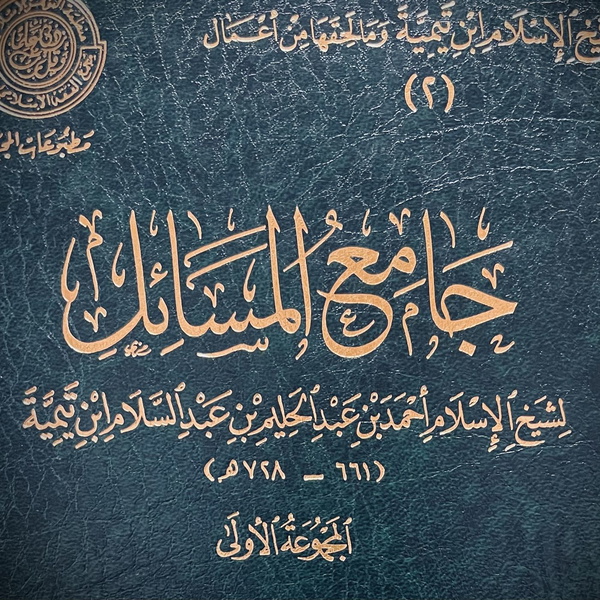 شيخ الإسلام ابن تيمية وما لحقها من أعمال
(٢)
مطبوعات
جَامِعُ المَسَائِلِ
لِشَيْخِ الإِسْلَامِ أَحْمَدَ بْنِ عَبْدِ الحَلِيمِ بْنِ عَبْدِ السَّلَامِ ابْنِ تَيْمِيَّةَ
(٦٦١ – ٧٢٨هـ)
المَجْمُوعَةُ الأُولَىٰ